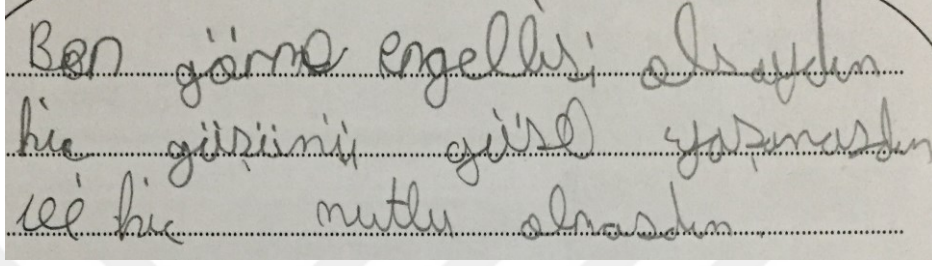 Ben görme engellisi olsaydın
hic güzünü güzel yaşamasdın
ve hic mutlu olmasdın.